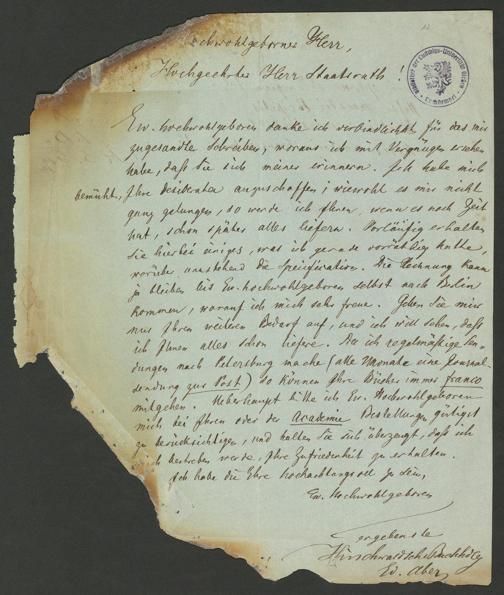 Hochwohlgebornes Herr,
Hochgeehrtes Herr Staatsrath!
Ew. Hochwohlgeboren danke ich verbindlichst für das mir
zugesandte Schreiben, woraus ich mit Vergnügen ersehen
habe, daß Sie sich meiner erinnern. Ich habe mich
bemüht, Ihre Desiderata anzuschaffen; wiewohl es mir nicht
ganz gelungen, so werde ich Ihnen, wenn es noch Zeit
hat, schon später alles liefern. Vorläufig erhalten
Sie hierbei einiges, was ich gerade vorräthig hatte,
worüber umstehend die Specification. Die Rechnung kann
ja bleiben bis Ew. Hochwohlgeboren selbst nach Berlin
kommen, worauf ich mich sehr freue. Geben Sie mir
nur Ihren weiteren Bedarf auf, und ich will sehen, daß
ich Ihnen alles schon liefere. Da ich regelmäßige Sen-
dungen nach Petersburg mache (alle Monate eine Journal-
sendung zur Post) so können Ihre Bücher immer franco
mitgehen. Ueberhaupt bitte ich Ew. Hochwohlgeboren
mich bei Ihren oder der Academie Bestellungen gütigst
zu berücksichtigen, und halten Sie sich überzeugt, daß ich
mich bestreben werde, Ihre Zufriedenheit zu erhalten.
Ich habe die Ehre hochachtungsvoll zu sein,
Ew. Hochwohlgeboren
ergebenste
Hirschwaldsche Buchhdlg
Ed. Aber